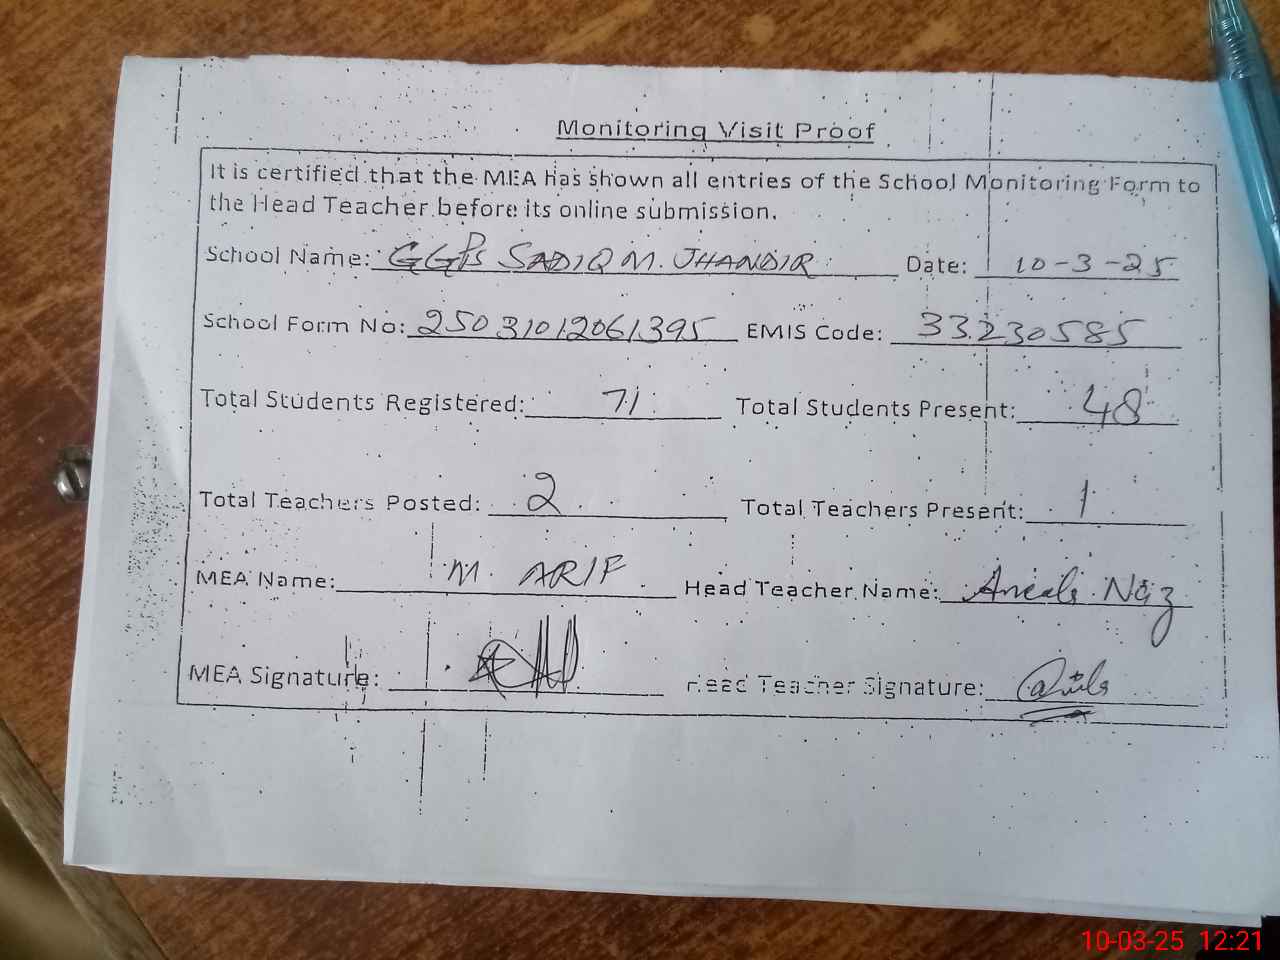 Monitoring Visit Proof
It is certified that the MEA has shown all entries of the School Monitoring Form to
the Head Teacher before its online submission.
School Name: GGPS SADIQ M. JHANDIR Date: 10-3-25
School Form No: 25031012061395 EMIS Code: 33230585
Total Students Registered: 71 Total Students Present: 48
Total Teachers Posted: 2 Total Teachers Present: 1
MEA Name: M. ARIF Head Teacher Name: Naz
MEA Signature: Head Teacher Signature:
10-03-25 12:21